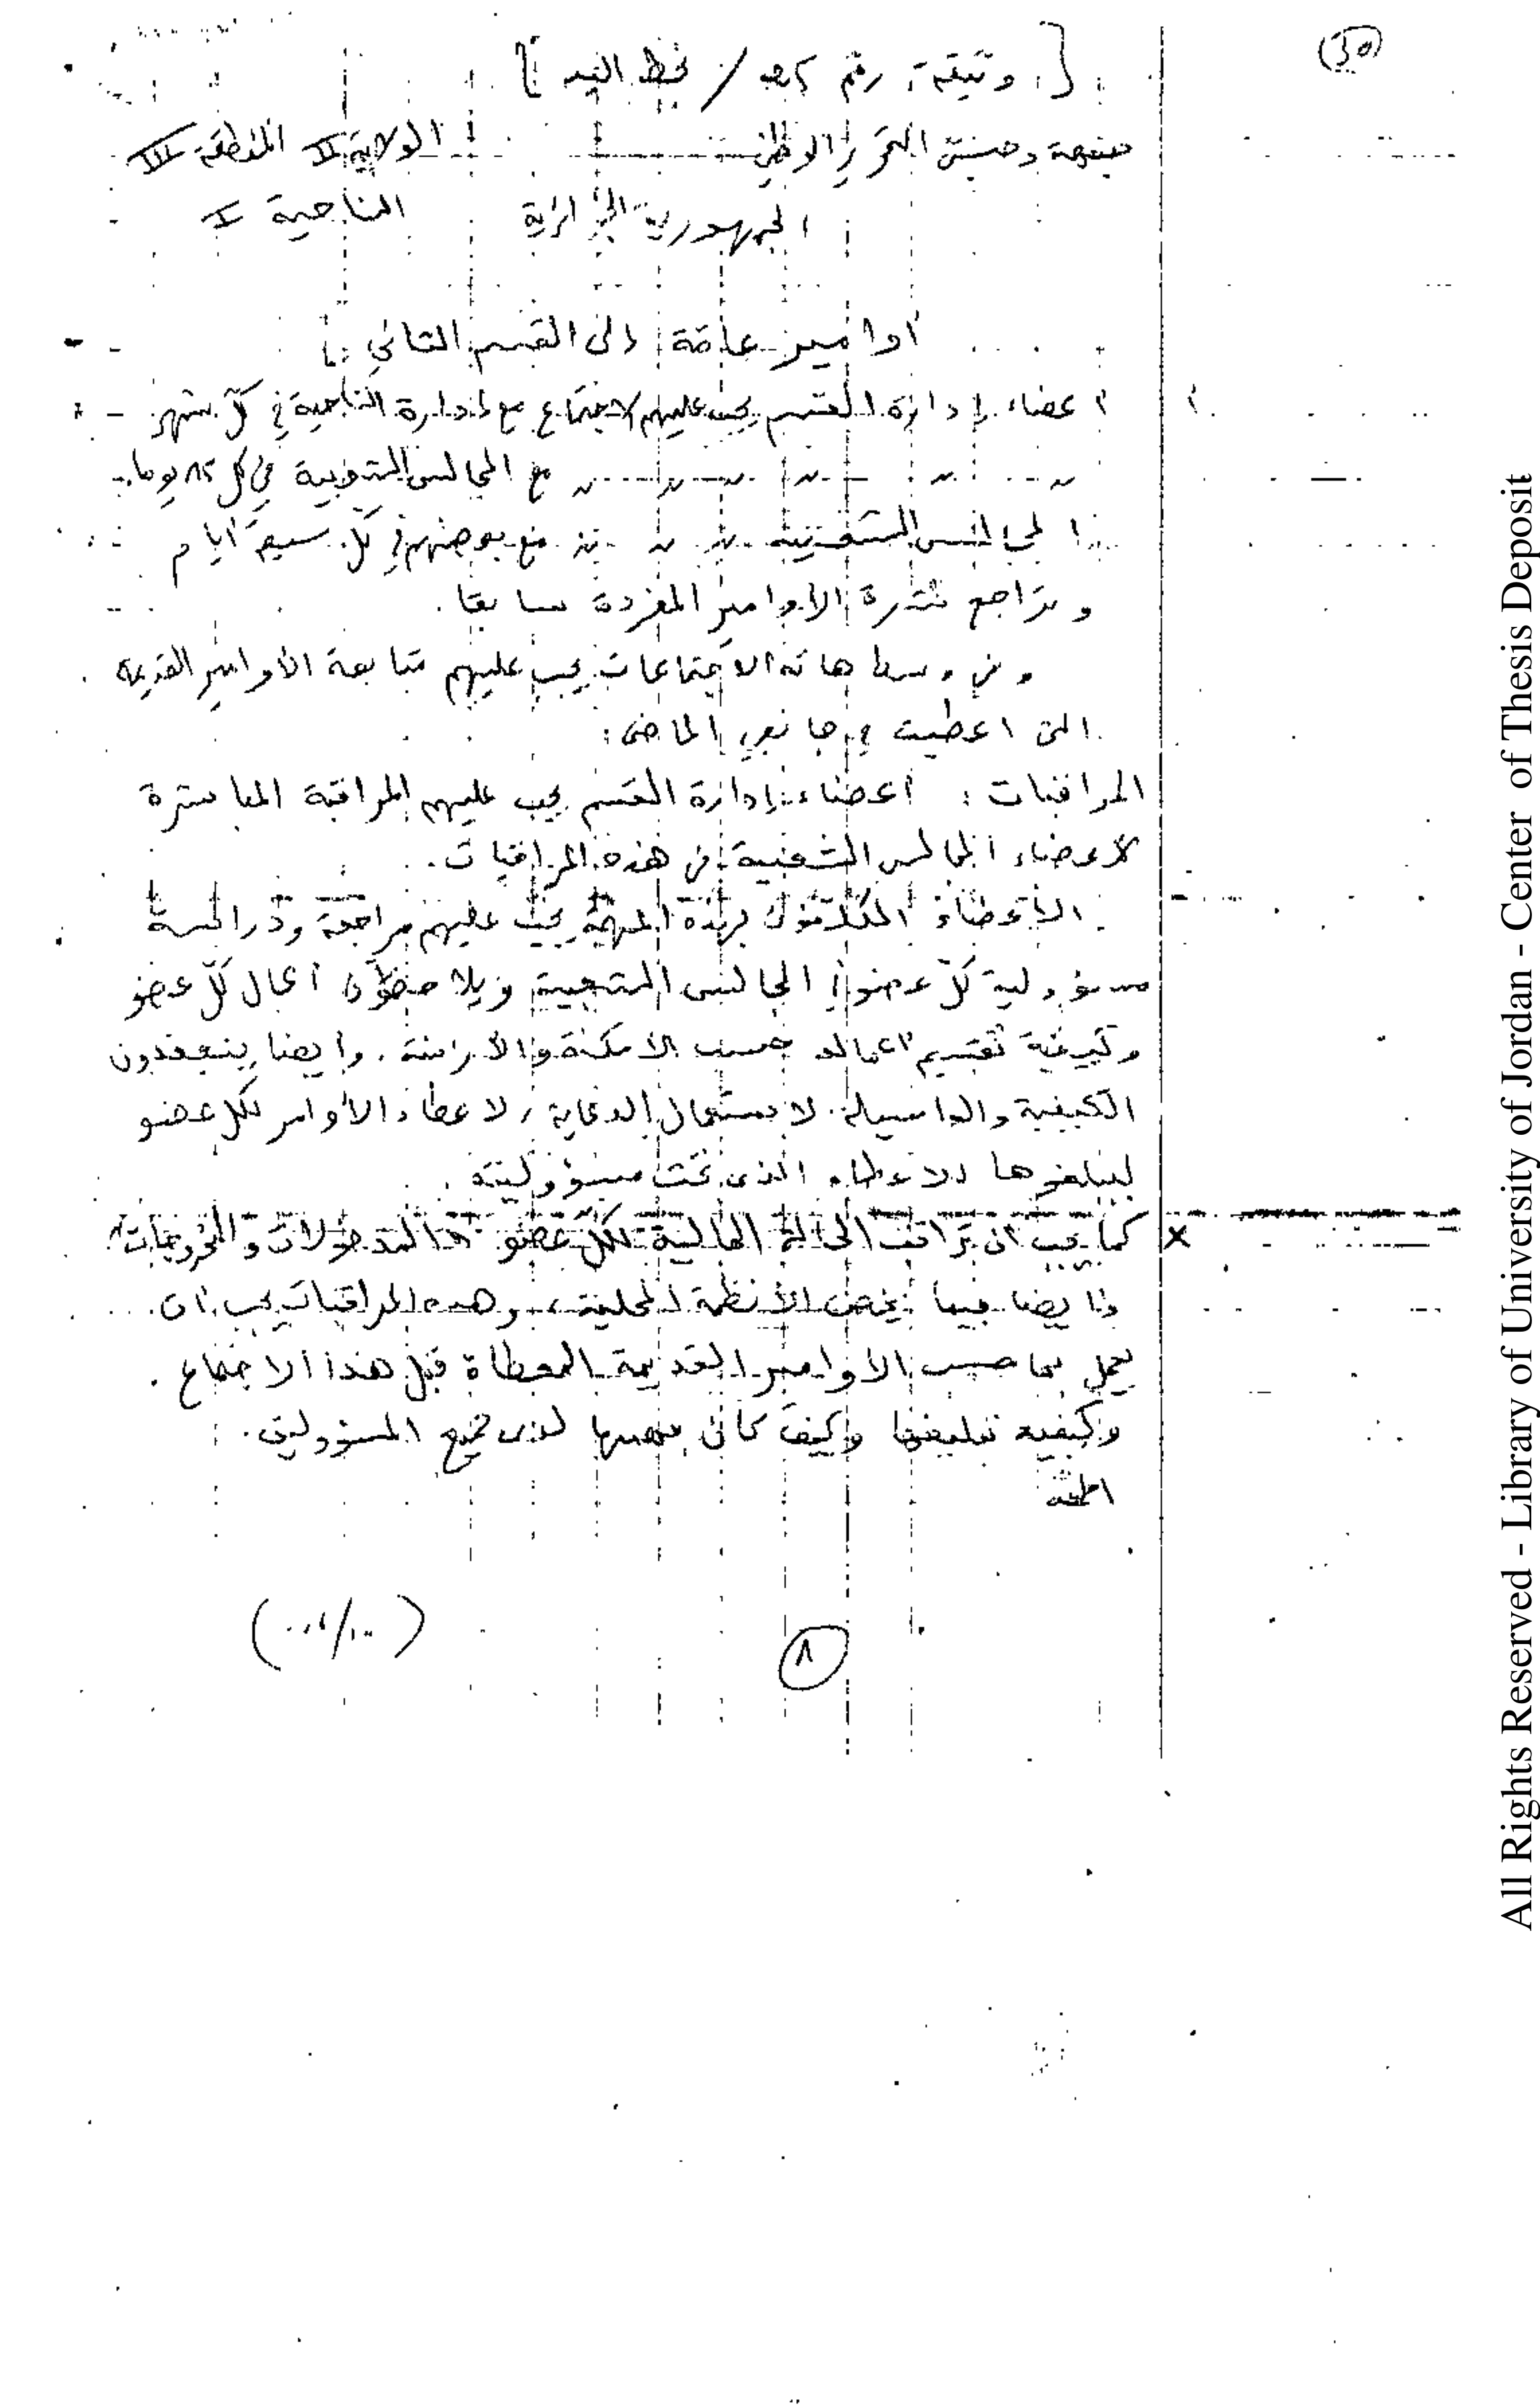 [ وثيقة رقم / بخط اليد ]
جبهة وجيش التحرير الوطني الولاية II المنطقة III
الجمهورية الجزائرية الناحية I
أوامير عامة إلى القسم الثاني :
أعضاء إدارة القسم يجب عليهم الاجتماع مع إدارة الناحية في كل شهر
〃 〃 〃 〃 〃 〃 مع المجالس الشعبية في كل 15 يوما
المجالس الشعبية 〃 〃 〃 مع بعضهم في كل سبعة أيام
وتراجع نشرة الأوامير المفردة سابقا .
وفي وسط هاته الاجتماعات يجب عليهم متابعة الأوامير القديمة
التي اعطيت في جانفي الماضي :
المراقبات : أعضاء إدارة القسم يجب عليهم المراقبة المباشرة
لأعضاء المجالس الشعبية في هذه المراقبات .
الأعضاء المكلفون بهذه المهمة يجب عليهم مراجعة ودراسة
مسؤولية كل عضو المجالس الشعبية ويلاحظون أعمال كل عضو
وكيفية تقسيم أعماله حسب الأمكنة والأزمنة . وأيضا يتفقدون
الكيفية والواسيلة لاستعمال الدعاية , لاعطاء الأوامر لكل عضو
ليبلغوها للأعضاء الذي تحت مسؤوليته .
x كما يجب ان تراقب الحالة المالية لكل عضو المدخولات والمخروجات
وأيضا فيما يخص الأنظمة المحلية ، وهذه المراقبات يجب ان
يعمل بها حسب الأوامير القديمة المعطاة قبل هذا الاجتماع .
وكيفية تبليغها وكيف كان لدى جميع المسؤولين .
(٨)
All Rights Reserved - Library of University of Jordan - Center of Thesis Deposit